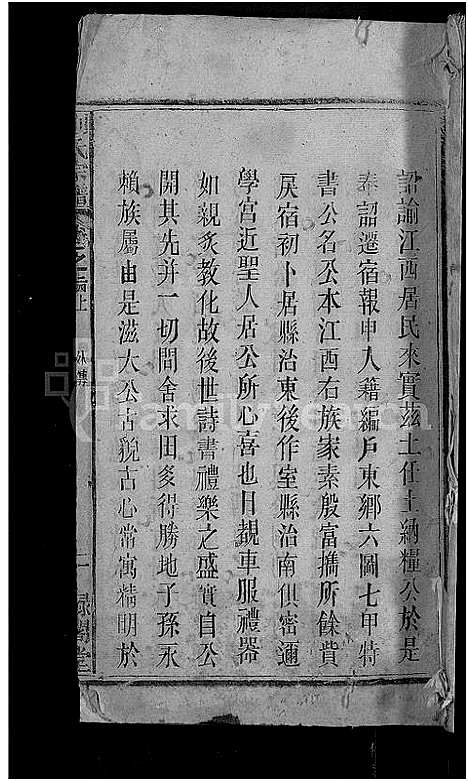 詔諭江西居民來實茲土任土納糧公於是
奉詔遷宿報申入籍編戶東鄉六圖七甲特
書公名公本江西右族家素殷富攜所餘貲
戾宿初卜居縣治東後作室縣治南俱密邇
學宮近聖人居公所心喜也目覩車服禮器
如親炙教化故後世詩書禮樂之盛實自公
開其先并一切間舍求田多得勝地子孫永
賴族屬由是滋大公古貌古心常寓精明於
氏宗譜 卷之 上